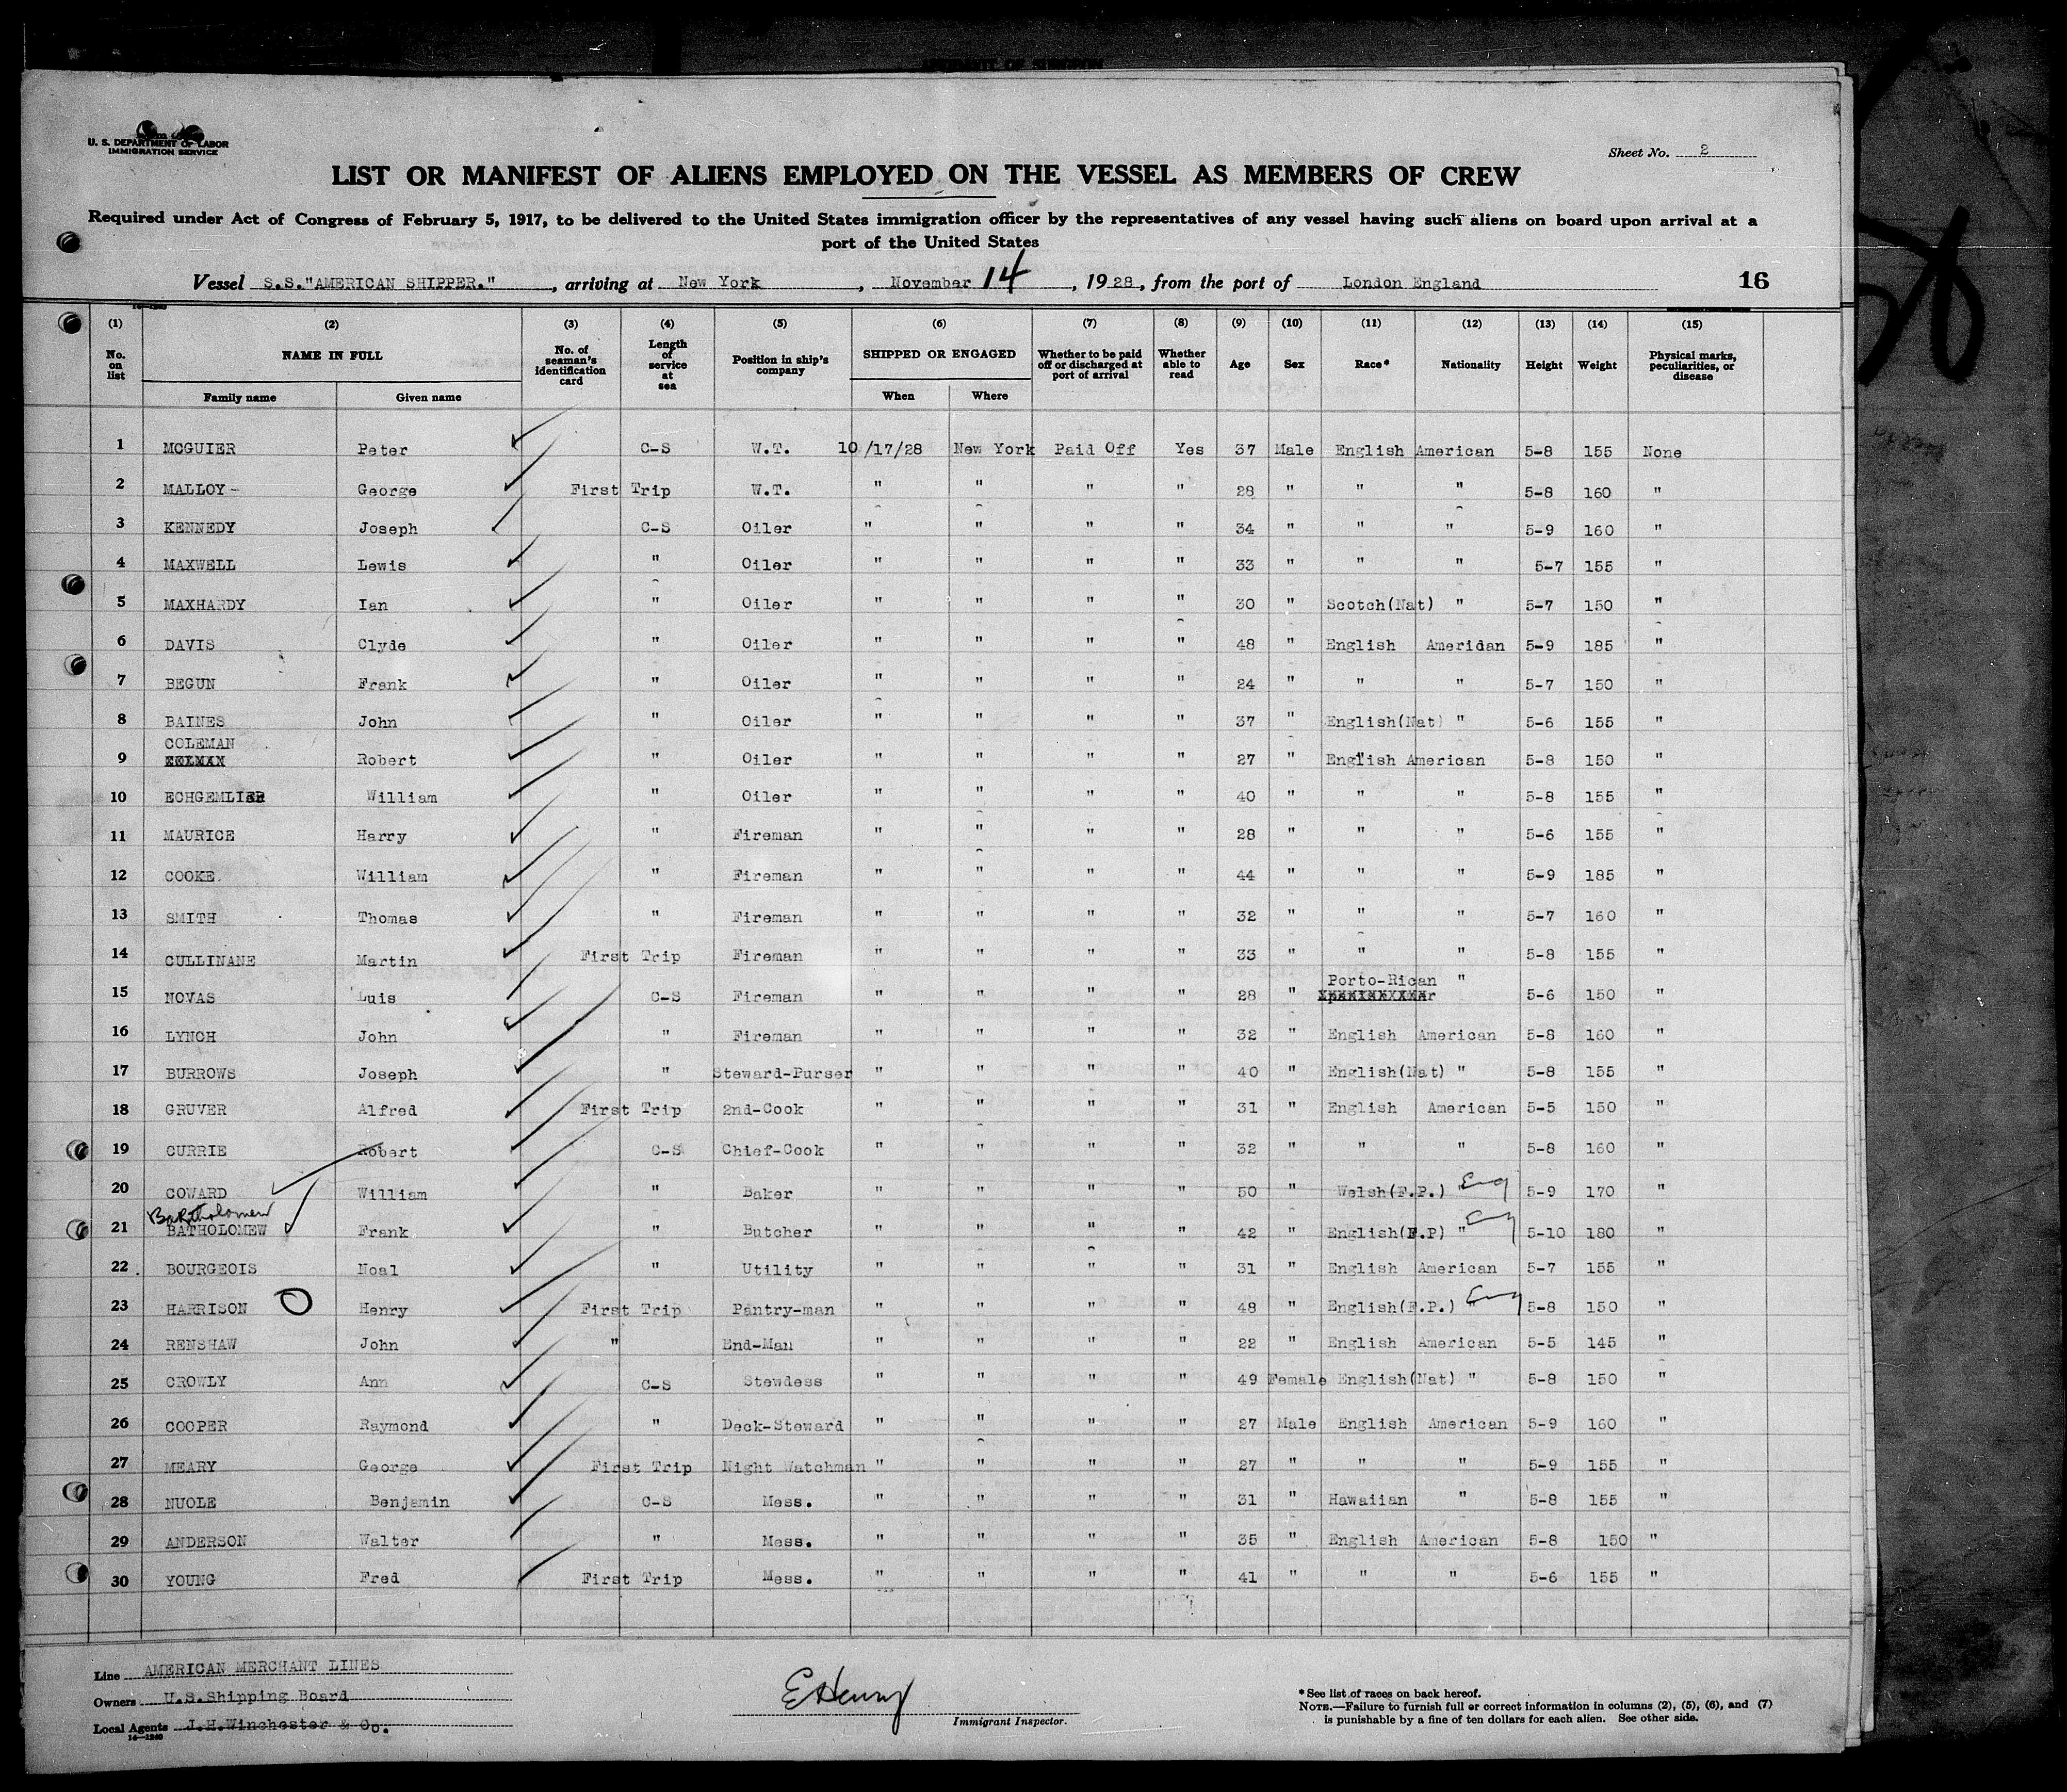 U. S. DEPARTMENT OF LABOR
IMMIGRATION SERVICE
Sheet No. 2
LIST OR MANIFEST OF ALIENS EMPLOYED ON THE VESSEL AS MEMBERS OF CREW
Required under Act of Congress of February 5, 1917, to be delivered to the United States immigration officer by the representatives of any vessel having such aliens on board upon arrival at a
port of the United States
Vessel S.S."AMERICAN SHIPPER.", arriving at New York, November 14, 1928, from the port of London England 16
(1) (2) (3) (4) (5) (6) (7) (8) (9) (10) (11) (12) (13) (14) (15)
No. on list NAME IN FULL No. of seaman's identification card Length of service at sea Position in ship's company SHIPPED OR ENGAGED Whether to be paid off or discharged at port of arrival Whether able to read Age Sex Race* Nationality Height Weight Physical marks, peculiarities, or disease
Family name Given name When Where
1 MCGUIER Peter C-S W.T. 10/17/28 New York Paid Off Yes 37 Male English American 5-8 155 None
2 MALLOY- George First Trip W.T. " " " " 28 " " " 5-8 160 "
3 KENNEDY Joseph C-S Oiler " " " " 34 " " " 5-9 160 "
4 MAXWELL Lewis " Oiler " " " " 33 " " " 5-7 155 "
5 MAXHARDY Ian " Oiler " " " " 30 " Scotch(Nat) " 5-7 150 "
6 DAVIS Clyde " Oiler " " " " 48 " English Ameridan 5-9 185 "
7 BEGUN Frank " Oiler " " " " 24 " " " 5-7 150 "
8 BAINES John " Oiler " " " " 37 " English(Nat) " 5-6 155 "
COLEMAN
9 Robert " Oiler " " " " 27 " English American 5-8 150 "
10 ECHGEMLIER William " Oiler " " " " 40 " " " 5-8 155 "
11 MAURICE Harry " Fireman " " " " 28 " " " 5-6 155 "
12 COOKE. William " Fireman " " " " 44 " " " 5-9 185 "
13 SMITH Thomas " Fireman " " " " 32 " " " 5-7 160 "
14 CULLINANE Martin First Trip Fireman " " " " 33 " " " 5-8 155 "
Porto-Rican "
15 NOVAS Luis C-S Fireman " " " " 28 " 5-6 150 "
16 LYNCH John " Fireman " " " " 32 " English American 5-8 160 "
17 BURROWS Joseph " Steward-Purser " " " " 40 " English(Nat) " 5-8 155 "
18 GRUVER Alfred First Trip 2nd-Cook " " " " 31 " English American 5-5 150 "
19 CURRIE Robert C-S Chief-Cook " " " " 32 " " " 5-8 160 "
20 COWARD William " Baker " " " " 50 " Welsh(F.P.) Eng 5-9 170 "
Bartholomew
21 BATHOLOMEW Frank " Butcher " " " " 42 " English(F.P) " Eng 5-10 180 "
22 BOURGEOIS Noal " Utility " " " " 31 " English American 5-7 155 "
23 HARRISON O Henry First Trip Pantry-man " " " " 48 " English(F.P.) " Eng 5-8 150 "
24 RENSHAW John " End-Man " " " " 22 " English American 5-5 145 "
25 CROWLY Ann C-S Stewdess " " " " 49 Female English(Nat) " 5-8 150 "
26 COOPER Raymond " Deck-Steward " " " " 27 Male English American 5-9 160 "
27 MEARY George First Trip Night Watchman " " " " 27 " " " 5-9 155 "
28 NUOLE Benjamin C-S Mess. " " " " 31 " Hawaiian " 5-8 155 "
29 ANDERSON Walter " Mess. " " " " 35 " English American 5-8 150 "
30 YOUNG Fred First Trip Mess. " " " " 41 " " " 5-6 155 "
Line AMERICAN MERCHANT LINES
Owners U.S.Shipping Board
Local Agents J.H.Winchester & Co.
14—1240
E Henry
Immigrant Inspector.
* See list of races on back hereof.
NOTE.—Failure to furnish full or correct information in columns (2), (5), (6), and (7)
is punishable by a fine of ten dollars for each alien. See other side.